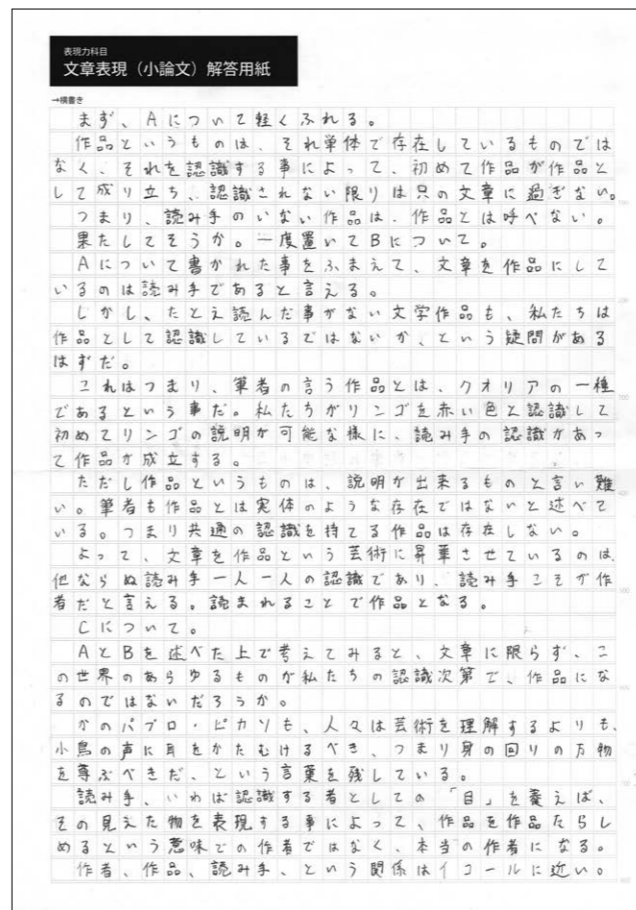 表現力科目
文章表現（小論文）解答用紙
→横書き
まず、Aについて軽くふれる。
作品というものは、それ単体で存在しているものでは
なく、それを認識する事によって、初めて作品が作品と
して成り立ち、認識されない限りは只の文章に過ぎない。
つまり、読み手のいない作品は、作品とは呼べない。
果たしてそうか。一度置いてBについて。
Aについて書かれた事をふまえて、文章を作品にして
いるのは読み手であると言える。
しかし、たとえ読んだ事がない文学作品も、私たちは
作品として認識しているではないか、という疑問がある
はずだ。
これはつまり、筆者の言う作品とは、クオリアの一種
であるという事だ。私たちがリンゴを赤い色と認識して
初めてリンゴの説明が可能な様に、読み手の認識があっ
て作品が成立する。
ただし作品というものは、説明が出来るものと言い難
い。筆者も作品とは実体のような存在ではないと述べて
いる。つまり共通の認識を持てる作品は存在しない。
よって、文章を作品という芸術に昇華させているのは、
他ならぬ読み手一人一人の認識であり、読み手こそが作
者だと言える。読まれることで作品となる。
Cについて。
AとBを述べた上で考えてみると、文章に限らず、こ
の世界のあらゆるものが私たちの認識次第で、作品にな
るのではないだろうか。
かのパブロ・ピカソも、人々は芸術を理解するよりも、
小鳥の声に耳をかたむけるべき、つまり身の回りの万物
を尊ぶべきだ、という言葉を残している。
読み手、いわば認識する者としての「目」を養えば、
その見えた物を表現する事によって、作品を作品たらし
めるという意味での作者ではなく、本当の作者になる。
作者、作品、読み手、という関係はイコールに近い。